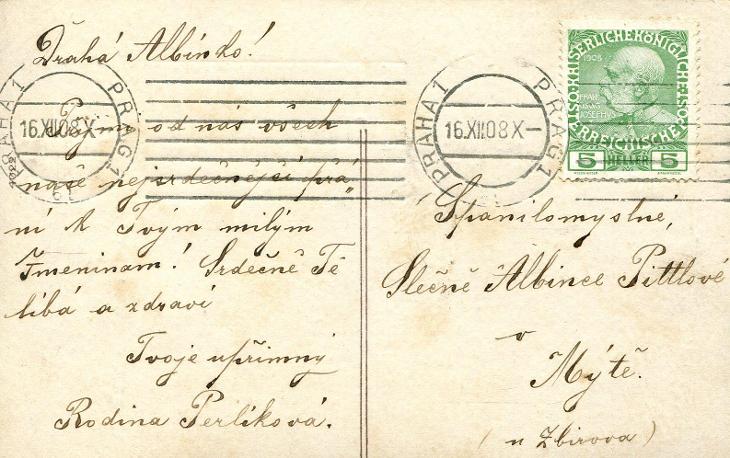 Drahá Albínko!
Přijmi od nás všech
naše nejsrdečnější přá
ní k Tvým milým
Jmeninám! Srdečně Tě
líbá a zdraví
Tvoje upřimný
Rodina Perlíková.
PRAHA 1 PRAG 1
16.XII.08 X-
PRAHA 1 PRAG 1
16.XII.08 X-
KAISERLICHE KÖNIGLICHE
ÖSTERREICHISCHE
1908
5 HELLER 5
Spanilomyslné,
Slečně Albince Pittlové
v
Mýtě.
(u Zbirova)